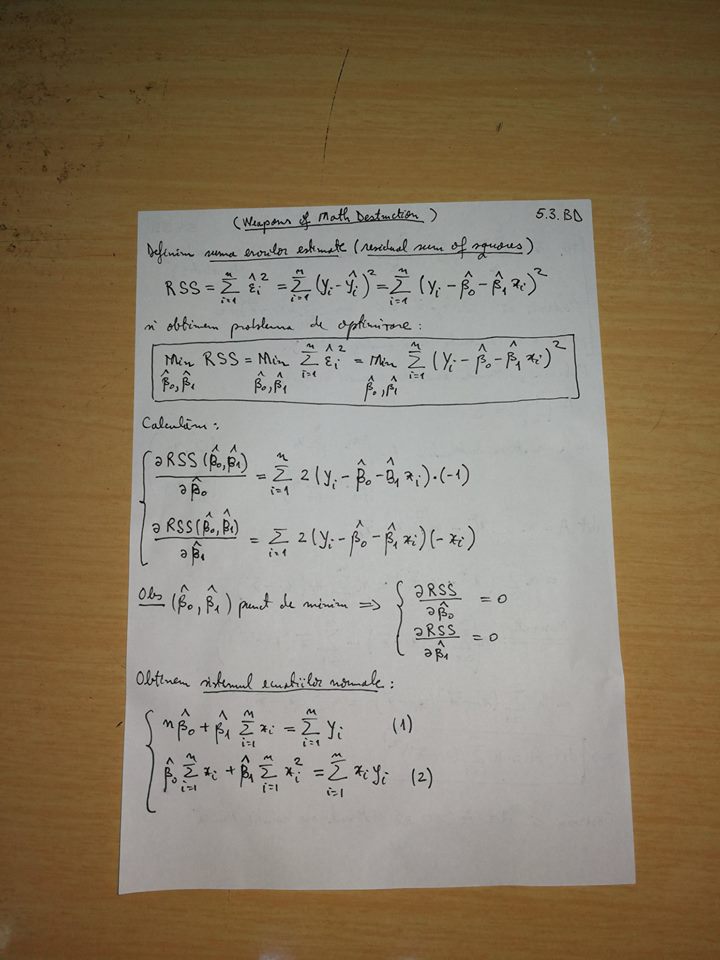 (Weapons of Math Destruction) 5.3. BD
Definim suma erorilor estimate (residual sum of squares)
RSS = ∑_{i=1}^{n} ε̂_i² = ∑_{i=1}^{n} (y_i - ŷ_i)² = ∑_{i=1}^{n} (y_i - β̂_0 - β̂_1 x_i)²
si obtinem problema de optimizare:
Min_{β̂_0, β̂_1} RSS = Min_{β̂_0, β̂_1} ∑_{i=1}^{n} ε̂_i² = Min_{β̂_0, β̂_1} ∑_{i=1}^{n} (y_i - β̂_0 - β̂_1 x_i)²
Calculăm:
∂RSS(β̂_0, β̂_1)/∂β̂_0 = ∑_{i=1}^{n} 2(y_i - β̂_0 - β̂_1 x_i)·(-1)
∂RSS(β̂_0, β̂_1)/∂β̂_1 = ∑_{i=1} 2(y_i - β̂_0 - β̂_1 x_i)(-x_i)
Obs (β̂_0, β̂_1) punct de minim ⇒ { ∂RSS/∂β̂_0 = 0
∂RSS/∂β̂_1 = 0
Obtinem sistemul ecuatiilor normale:
nβ̂_0 + β̂_1 ∑_{i=1}^{n} x_i = ∑_{i=1}^{n} y_i (1)
β̂_0 ∑_{i=1}^{n} x_i + β̂_1 ∑_{i=1}^{n} x_i² = ∑_{i=1}^{n} x_i y_i (2)